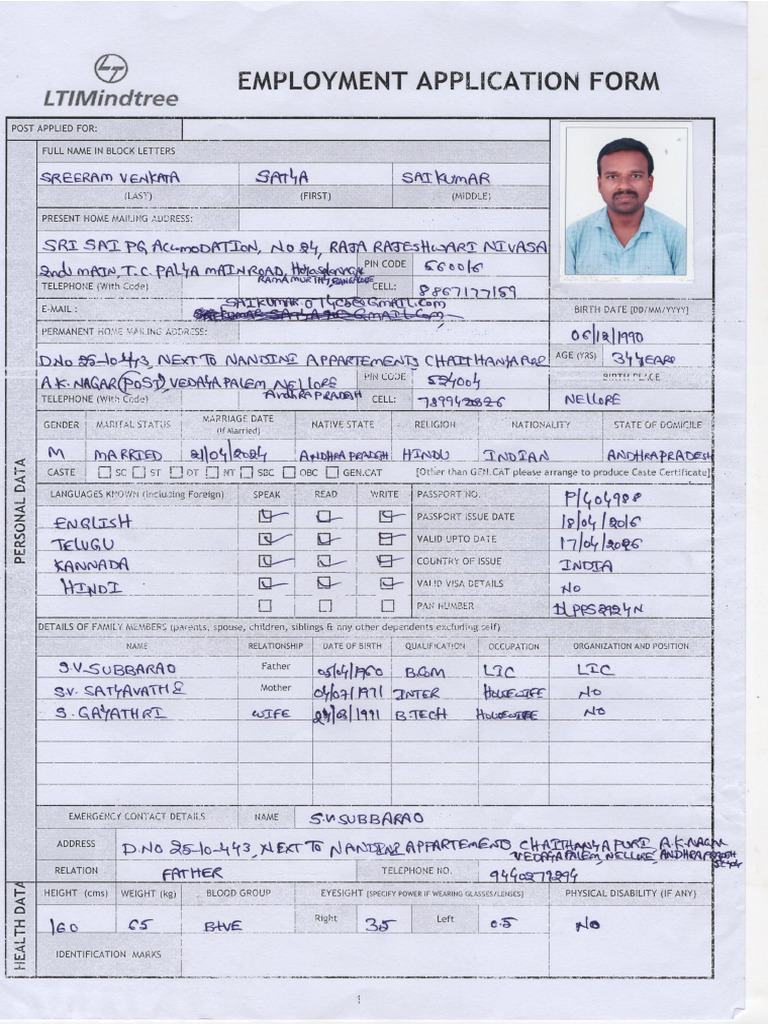 LTIMindtree
EMPLOYMENT APPLICATION FORM
POST APPLIED FOR:
FULL NAME IN BLOCK LETTERS
SREERAM VENKATA SATYA SAIKUMAR
(LAST) (FIRST) (MIDDLE)
PRESENT HOME MAILING ADDRESS:
SRI SAI PG ACCMODATION, NO 24, RAJA RAJESHWARI NIVASA
2nd MAIN, T.C. PALYA MAIN ROAD, PIN CODE 560016
RAMAMURTHY, BANGLORE
TELEPHONE (With Code) CELL: 8867177159
E-MAIL : SAIKUMAR.0714C8@GMAIL.COM BIRTH DATE [DD/MM/YYYY]
PERMANENT HOME MAILING ADDRESS: 06/12/1990
D.NO 25-10-443, NEXT TO NANDINI APPARTEMENTS CHAITHANYAPURI AGE (YRS) 34 YEARS
A.K. NAGAR (POST), VEDAYAPALEM, NELLORE PIN CODE 524004 BIRTH PLACE
ANDHRAPRADESH
TELEPHONE (With Code) CELL: 789942826 NELLORE
GENDER MARITAL STATUS MARRIAGE DATE (If Married) NATIVE STATE RELIGION NATIONALITY STATE OF DOMICILE
M MARRIED 21/04/2024 ANDHRAPRADESH HINDU INDIAN ANDHRAPRADESH
CASTE SC ST DT NT SBC OBC GEN.CAT [Other than GEN.CAT please arrange to produce Caste Certificate]
PERSONAL DATA
LANGUAGES KNOWN (Including Foreign) SPEAK READ WRITE PASSPORT NO. P1404988
ENGLISH PASSPORT ISSUE DATE 18/04/2016
TELUGU VALID UPTO DATE 17/04/2026
KANNADA COUNTRY OF ISSUE INDIA
HINDI VALID VISA DETAILS NO
PAN NUMBER
DETAILS OF FAMILY MEMBERS (parents, spouse, children, siblings & any other dependents excluding self)
NAME RELATIONSHIP DATE OF BIRTH QUALIFICATION OCCUPATION ORGANIZATION AND POSITION
S.V. SUBBARAO Father 05/04/1960 B.COM LIC LIC
SV. SATYAVATHI Mother 04/07/1971 INTER HOUSEWIFE NO
S. GAYATHRI WIFE B.TECH HOUSEWIFE NO
EMERGENCY CONTACT DETAILS NAME S.V. SUBBARAO
ADDRESS D.NO 25-10-443, NEXT TO NANDINI APPARTEMENTS CHAITHANYAPURI, A.K. NAGAR
VEDAYAPALEM, NELLORE, ANDHRAPRADESH
RELATION FATHER TELEPHONE NO. 9440279294
HEALTH DATA
HEIGHT (cms) WEIGHT (kg) BLOOD GROUP EYESIGHT [SPECIFY POWER IF WEARING GLASSES/LENSES] PHYSICAL DISABILITY (IF ANY)
160 65 B+VE Right 35 Left 0.5 NO
IDENTIFICATION MARKS
1